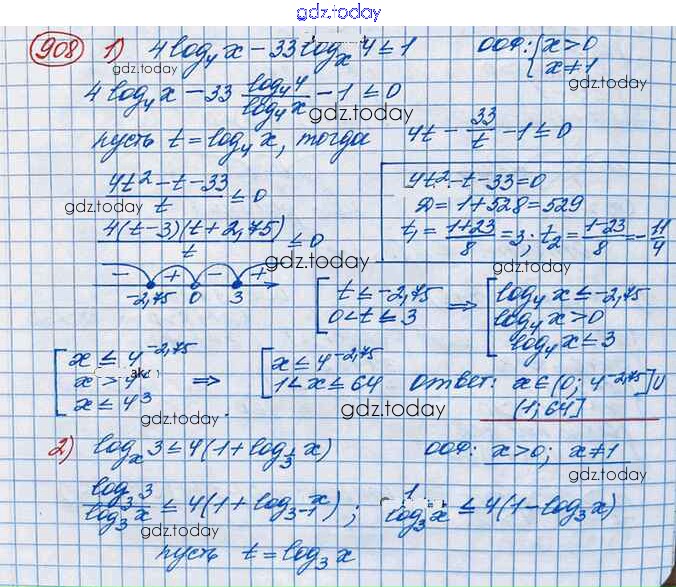 gdz.today
908 1) 4log₄x - 33logₓ4 ≤ 1 ООФ: { x > 0
x ≠ 1
gdz.today
4log₄x - 33 log₄4/log₄x - 1 ≤ 0
gdz.today
пусть t = log₄x, тогда 4t - 33/t - 1 ≤ 0
(4t² - t - 33)/t ≤ 0
gdz.today
4t² - t - 33 = 0
gdz.today
Д = 1 + 528 = 529
t₁ = (1+23)/8 = 3; t₂ = (1-23)/8 = -11/4
4(t-3)(t+2,75)/t ≤ 0
gdz.today
gdz.today
- + - +
-2,75 0 3
[ t ≤ -2,75
0 < t ≤ 3
⇒ [ log₄x ≤ -2,75
log₄x > 0
log₄x ≤ 3
[ x ≤ 4^(-2,75)
x > 4
x ≤ 4³
⇒ [ x ≤ 4^(-2,75)
1 < x ≤ 64
ответ: x ∈ (0; 4^(-2,75)] ∪
(1; 64]
gdz.today
gdz.today
2) logₓ3 ≤ 4(1 + log_(1/3) x) ООФ: x > 0; x ≠ 1
gdz.today
log₃3/log₃x ≤ 4(1 + log_(3⁻¹) x); 1/log₃x ≤ 4(1 - log₃x)
gdz.today
пусть t = log₃x
gdz.today